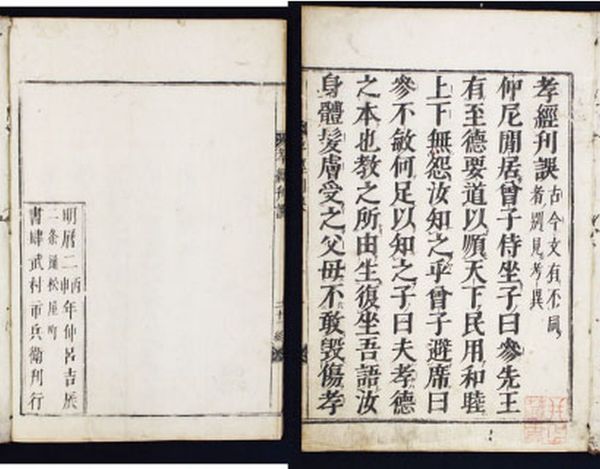 孝經刊誤
古今文有不同
者別見考異
仲尼閒居曾子侍坐子曰參先王
有至德要道以順天下民用和睦
上下無怨汝知之乎曾子避席曰
參不敏何足以知之子曰夫孝德
之本也教之所由生復坐吾語汝
身體髮膚受之父母不敢毀傷孝
孝經刊誤
明曆二丙申年仲呂吉辰
二条通松屋町
書肆武村市兵衛刊行